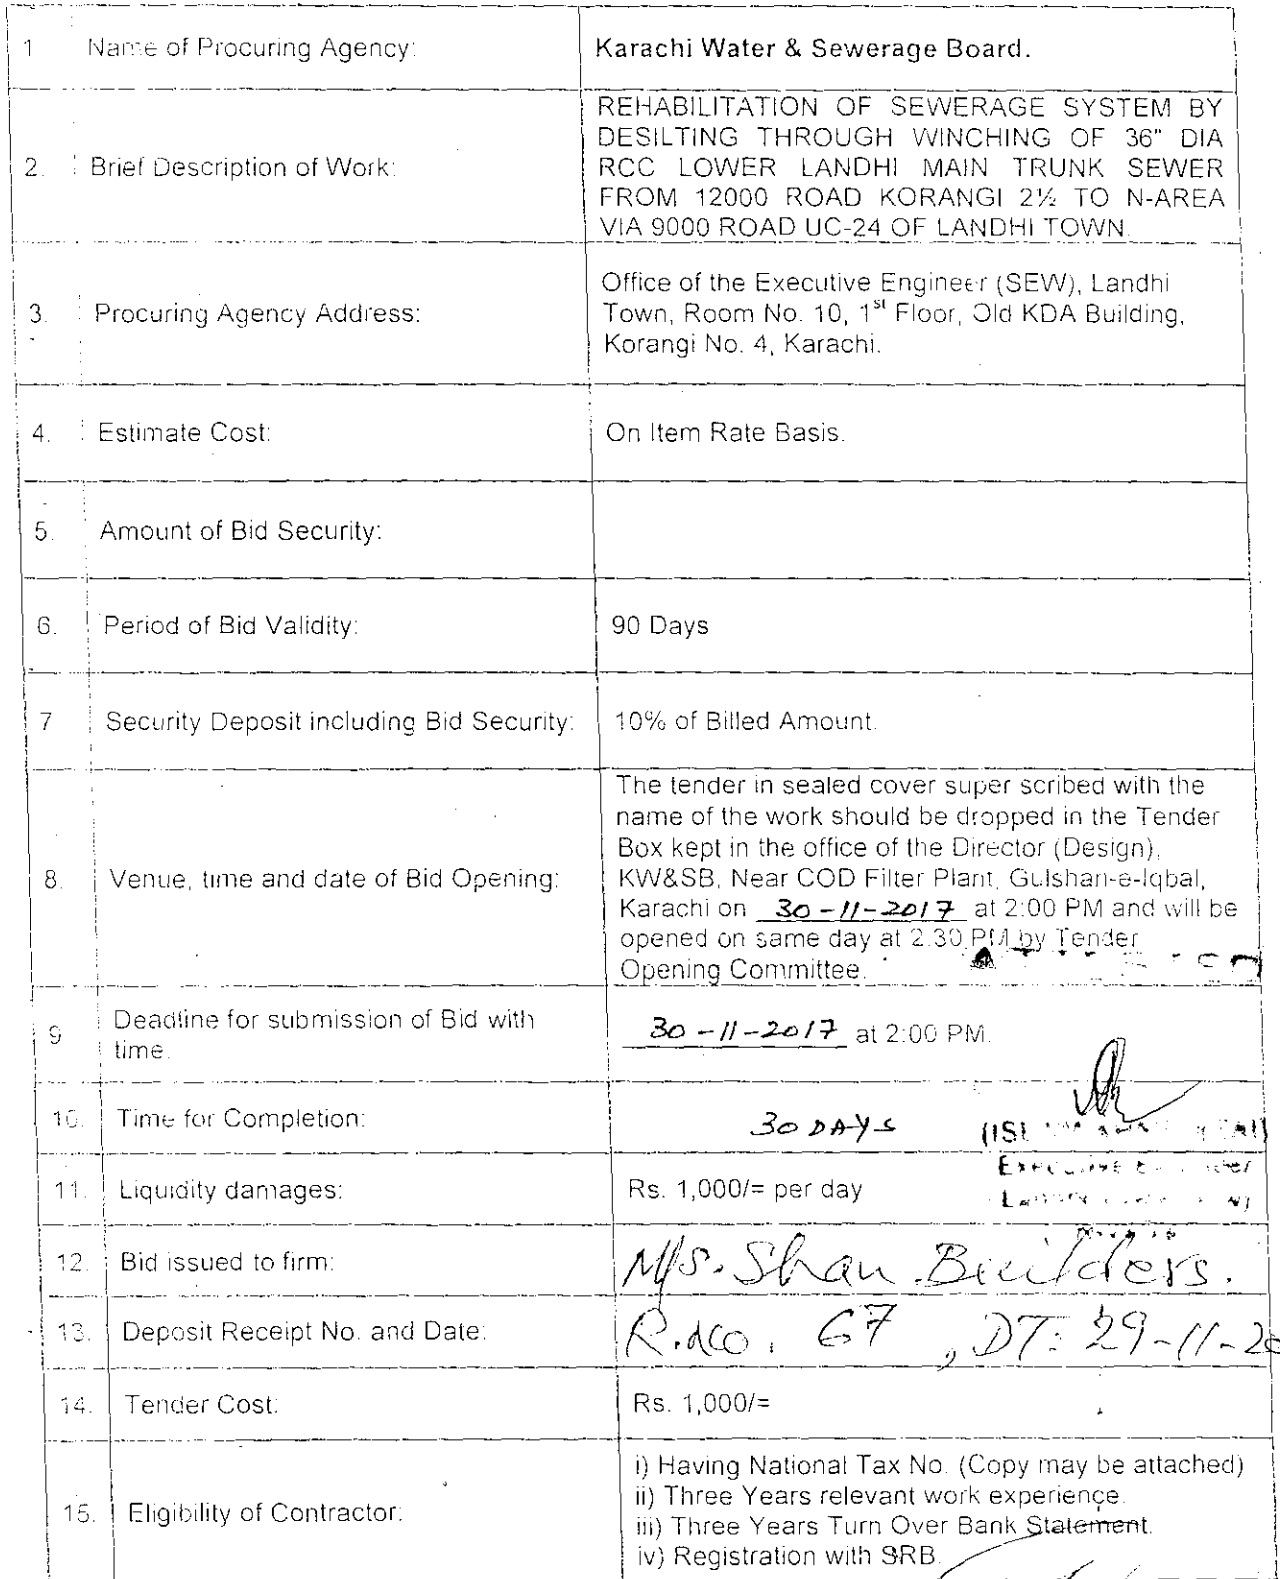 1 Name of Procuring Agency: Karachi Water & Sewerage Board.
2. Brief Description of Work: REHABILITATION OF SEWERAGE SYSTEM BY
DESILTING THROUGH WINCHING OF 36" DIA
RCC LOWER LANDHI MAIN TRUNK SEWER
FROM 12000 ROAD KORANGI 2½ TO N-AREA
VIA 9000 ROAD UC-24 OF LANDHI TOWN.
3. Procuring Agency Address: Office of the Executive Engineer (SEW), Landhi
Town, Room No. 10, 1st Floor, Old KDA Building,
Korangi No. 4, Karachi.
4. Estimate Cost: On Item Rate Basis.
5. Amount of Bid Security:
6. Period of Bid Validity: 90 Days
7 Security Deposit including Bid Security: 10% of Billed Amount.
8. Venue, time and date of Bid Opening: The tender in sealed cover super scribed with the
name of the work should be dropped in the Tender
Box kept in the office of the Director (Design),
KW&SB, Near COD Filter Plant, Gulshan-e-Iqbal,
Karachi on 30-11-2017 at 2:00 PM and will be
opened on same day at 2.30 PM by Tender
Opening Committee.
9 Deadline for submission of Bid with
time. 30-11-2017 at 2:00 PM.
10. Time for Completion: 30 DAYS
11. Liquidity damages: Rs. 1,000/= per day
Executive
12. Bid issued to firm: M/S. Shan Builders.
13. Deposit Receipt No. and Date: R.No. 67, DT: 29-11-20
14. Tender Cost: Rs. 1,000/=
15. Eligibility of Contractor: i) Having National Tax No. (Copy may be attached)
ii) Three Years relevant work experience.
iii) Three Years Turn Over Bank Statement.
iv) Registration with SRB.